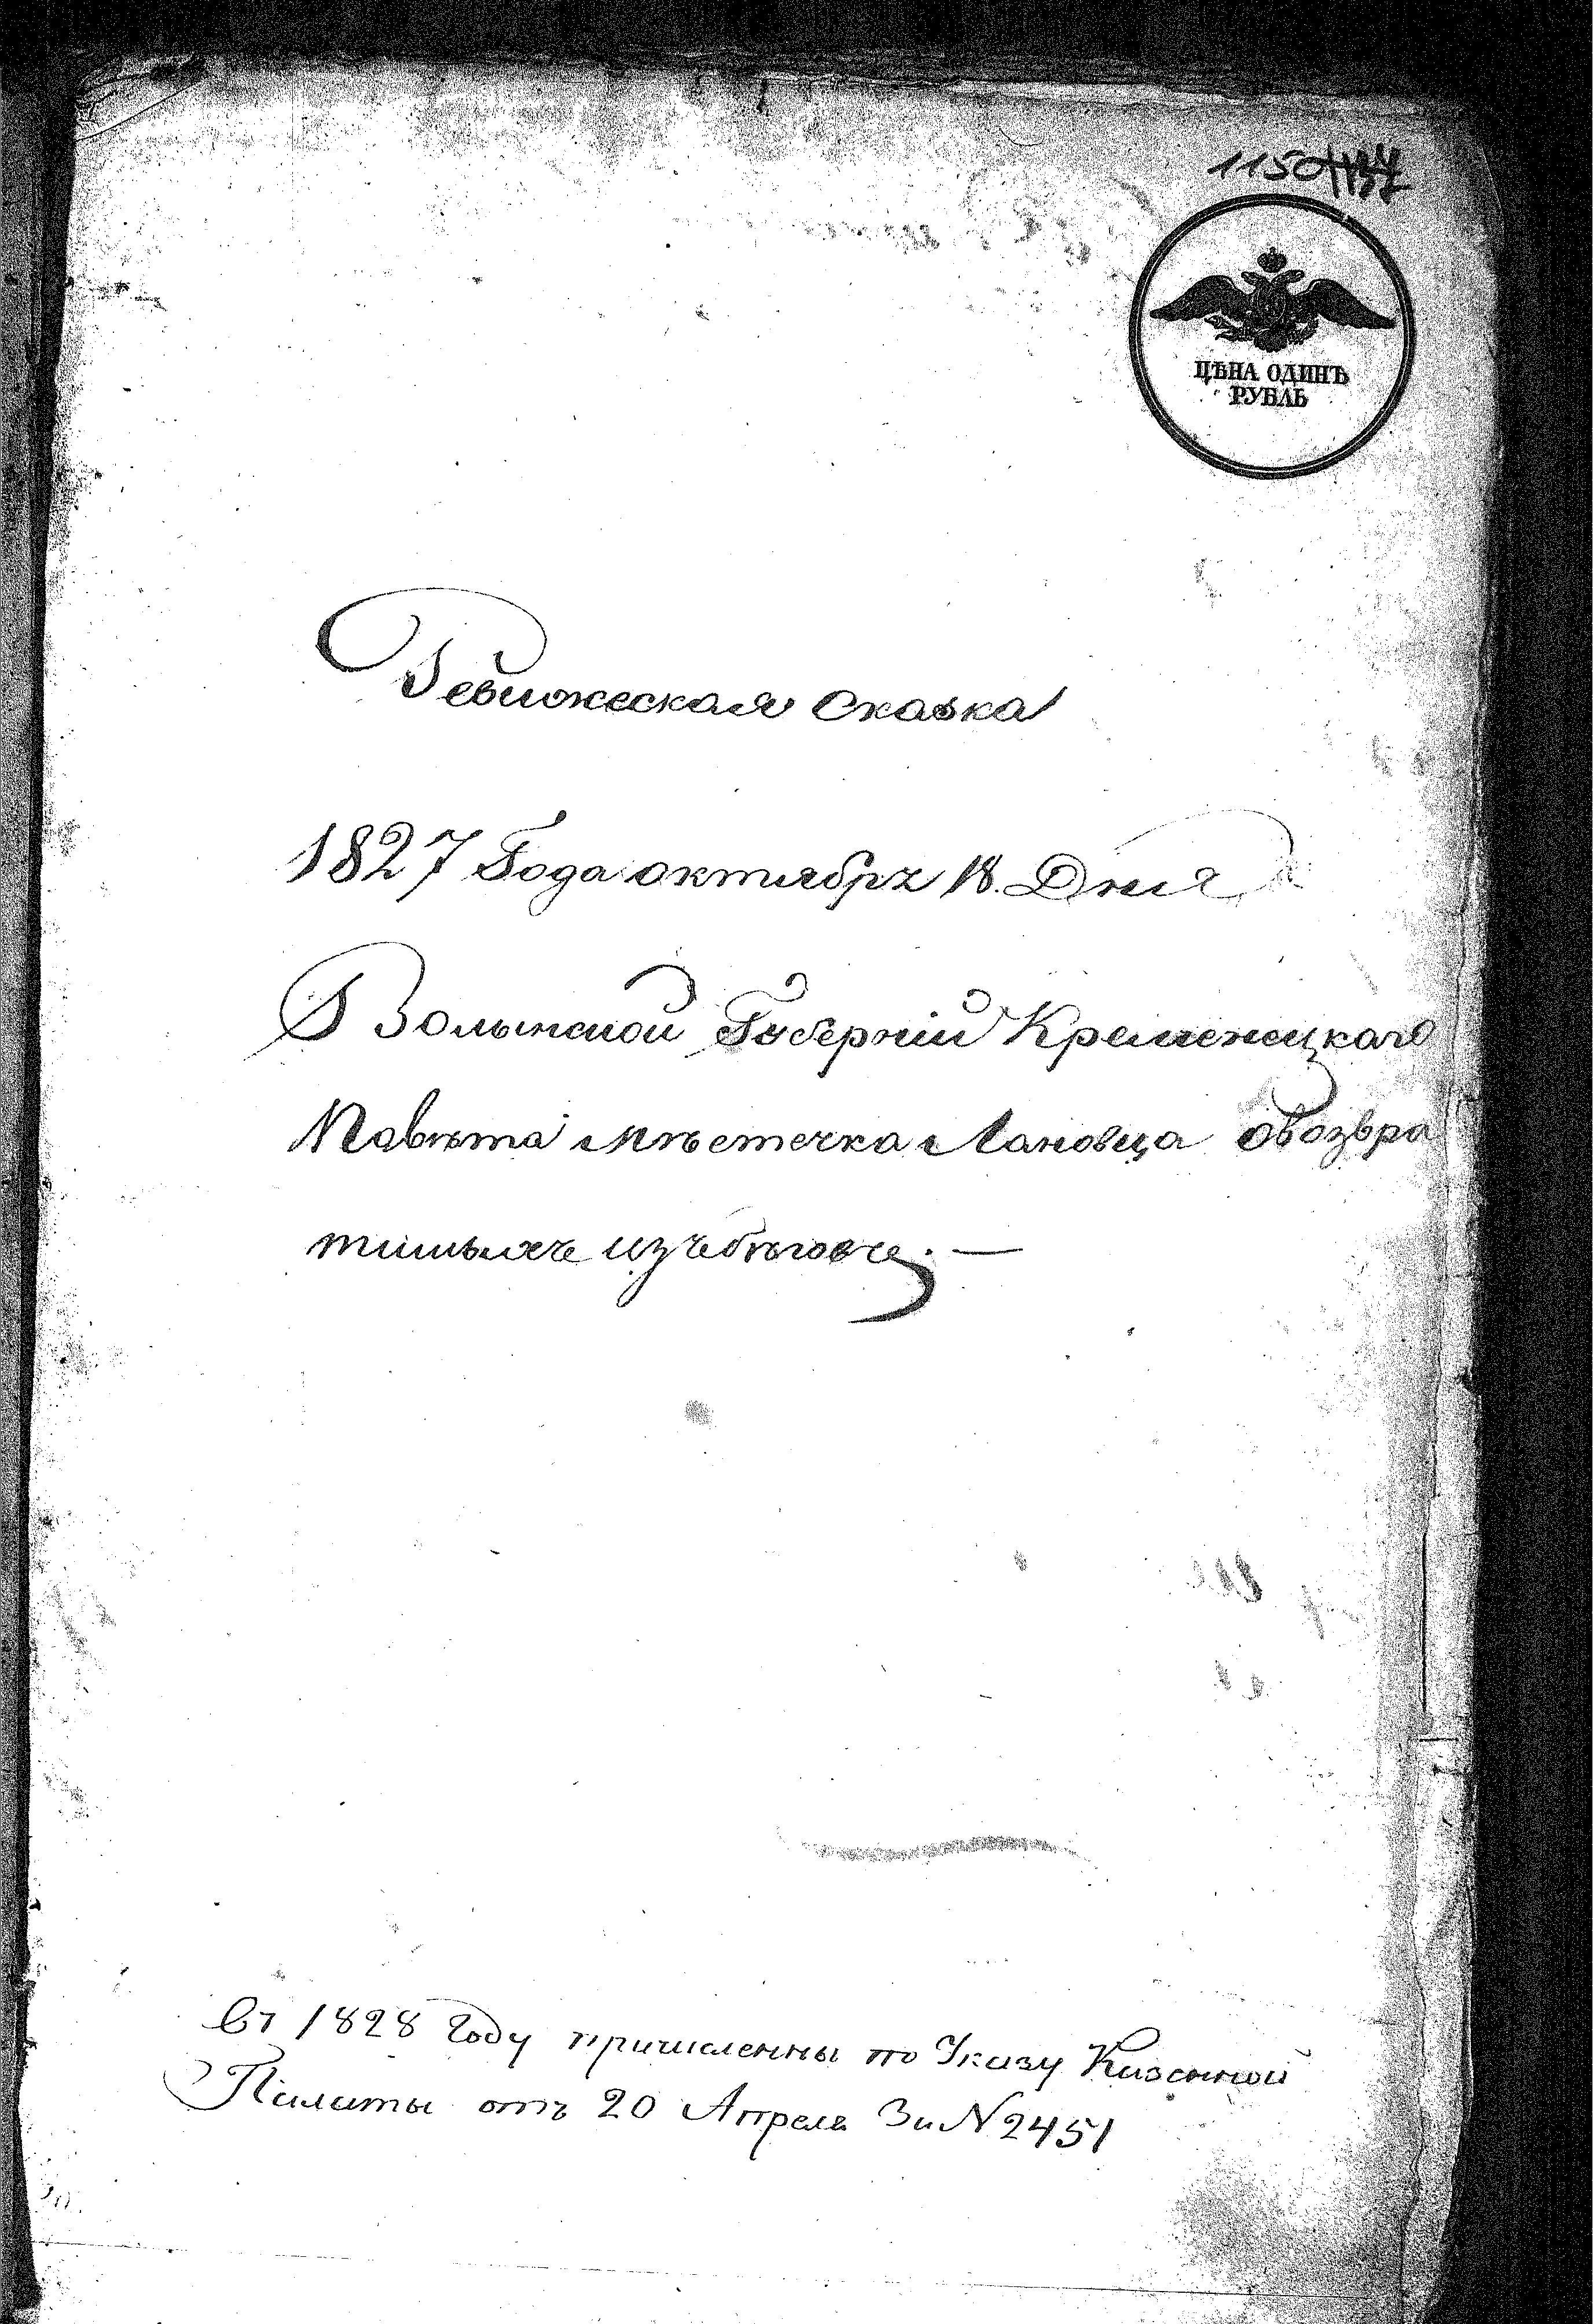 1150
ЦѢНА ОДИНЪ
РУБЛЬ
Ревижеская Сказка
1827 Года октября 18. Дня
Волынской Губерніи Кременецкаго
Павѣта мѣстечка Лановца овозвра
тившыхъ изъбѣговъ. —
Въ 1828 Году причисленны по Указу Казенной
Палаты отъ 20 Апреля За N 2451